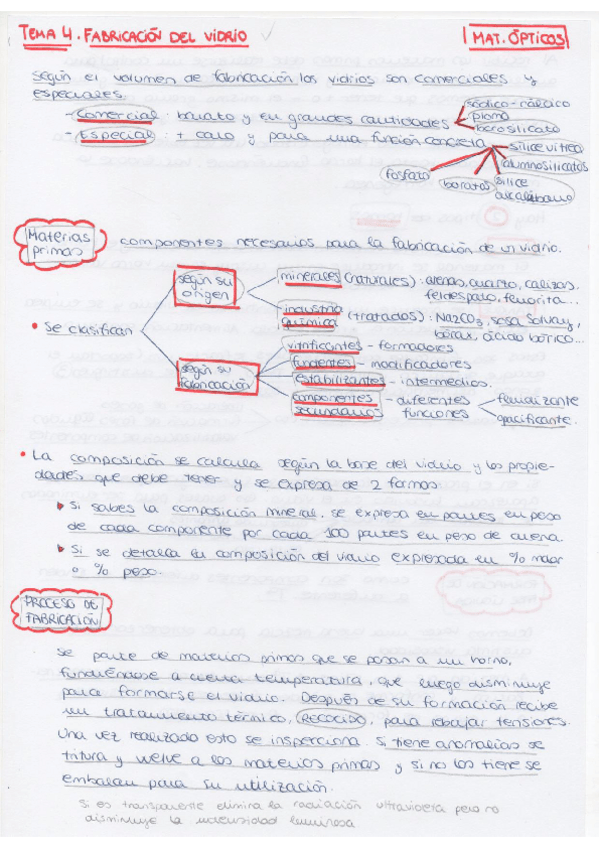 TEMA 4. FABRICACIÓN DEL VIDRIO
MAT. ÓPTICOS
según el volumen de fabricación los vidrios son comerciales y
especiales.
- Comercial : barato y en grandes cantidades
sódico-cálcico
plomo
borosilicato
- Especial : + caro y para una función concreta
sílice vítrea
aluminosilicatos
sílice
boratos
fosfato
Materias
primas
componentes necesarios para la fabricación de un vidrio.
• Se clasifican
según su
origen
minerales (naturales) : arenas, cuarzo, calizas,
feldespato, fluorita...
industria
química (tratados) : Na2CO3, sosa solvay,
bórax, ácido bórico...
según su
fabricación
vitrificantes - formadores
fundentes - modificadores
estabilizantes - intermedios.
componentes
secundarios - diferentes
funciones
fluidizante
opacificante.
• La composición se calcula según la base del vidrio y las propie-
dades que debe tener y se expresa de 2 formas
Si sabes la composición mineral, se expresa en partes en peso
de cada componente por cada 100 partes en peso de arena
Si se detalla la composición del vidrio expresada en % molar
o % peso.
PROCESO DE
FABRICACIÓN
Se parte de materias primas que se pasan a un horno,
fundiéndose a cierta temperatura, que luego disminuye
para formarse el vidrio. Después de su formación recibe
un tratamiento térmico, RECOCIDO, para rebajar tensiones.
Una vez realizado esto se inspecciona. Si tiene anomalías se
tritura y vuelve a las materias primas y si no las tiene se
embalan para su utilización.
Si es transparente elimina la radiación ultravioleta pero no
disminuye la intensidad luminosa